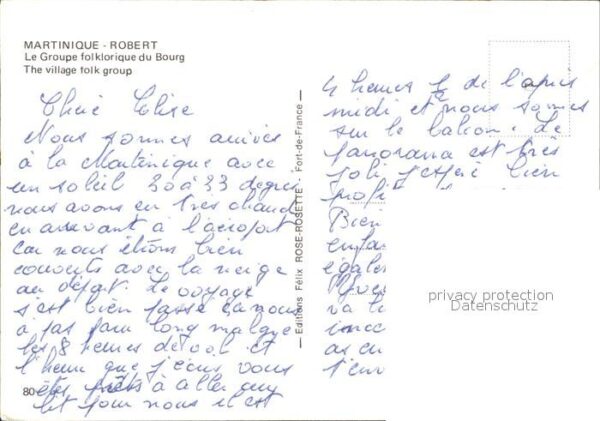 MARTINIQUE - ROBERT
Le Groupe folklorique du Bourg
The village folk group
Chère Elise
Nous sommes arrivés
à la Martinique avec
un soleil 30 à 33 degrés
nous avons eu très chaud
en arrivant à l'aéroport
car nous étions bien
couverts avec la neige
au départ. Le voyage
s'est bien passé ça nous
a pas paru long malgré
les 8 heures de vol et
l'heure que j'écris vous
êtes prêts à aller au
lit pour nous il est
80
Editions Félix ROSE-ROSETTE - Fort-de-France
4 heures de l'après
midi et nous sommes
sur le balcon. Le
panorama est très
joli j'espère bien
Bien
privacy protection
Datenschutz
va